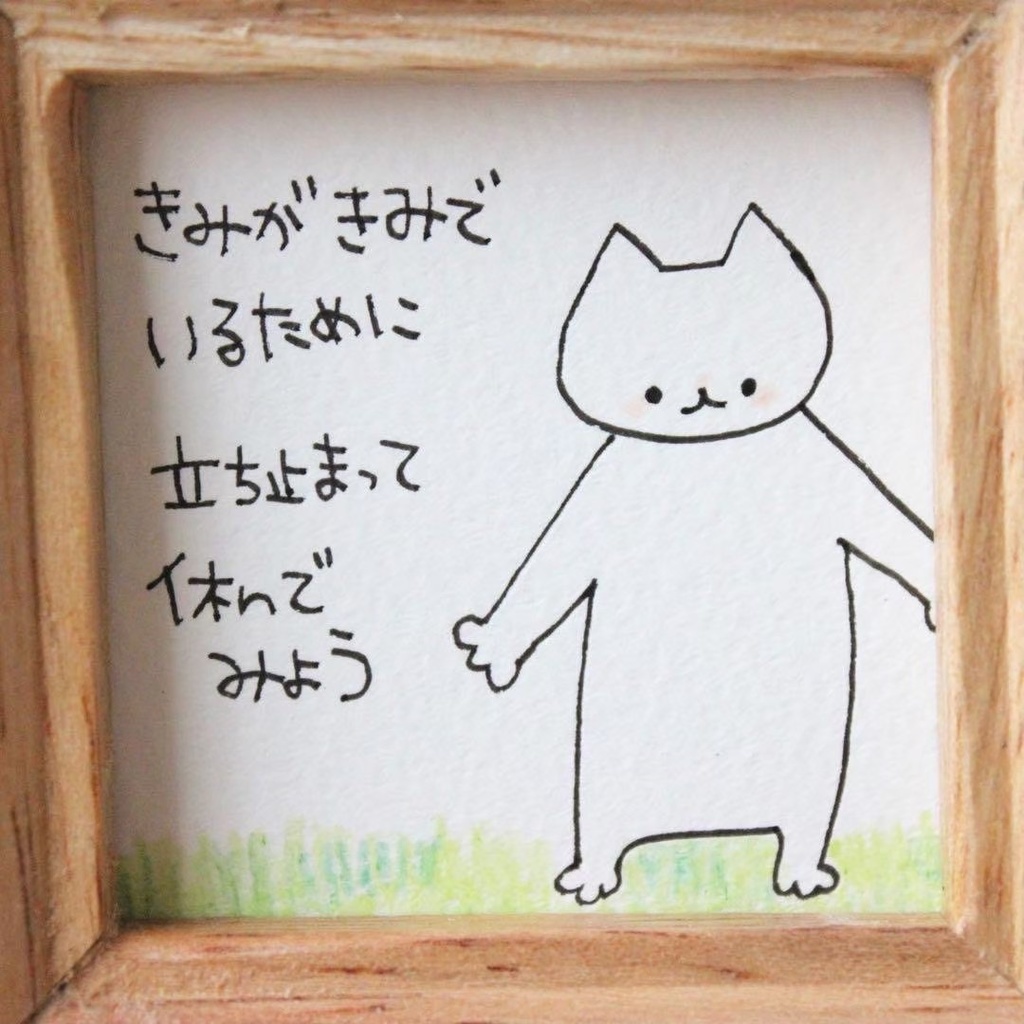 きみがきみで
いるために
立ち止まって
休んで
みよう